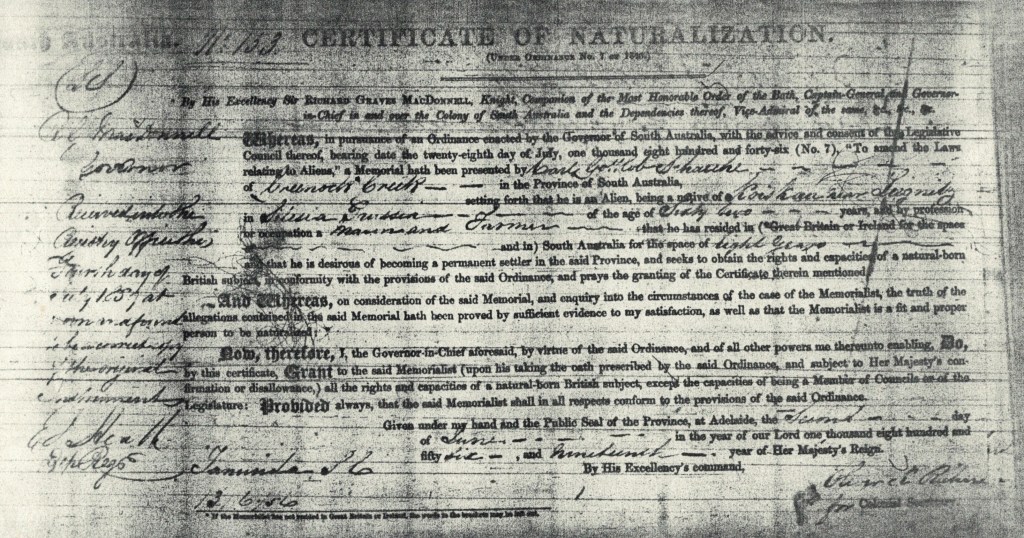 South Australia. No. 153. CERTIFICATE OF NATURALIZATION.
(UNDER ORDINANCE No. 7 OF 1846.)
By His Excellency Sir RICHARD GRAVES MACDONNELL, Knight, Companion of the Most Honorable Order of the Bath, Captain-General and Governor-
in-Chief in and over the Colony of South Australia and the Dependencies thereof, Vice-Admiral of the same, &c., &c., &c.
Whereas, in pursuance of an Ordinance enacted by the Governor of South Australia, with the advice and consent of the Legislative
Council thereof, bearing date the twenty-eighth day of July, one thousand eight hundred and forty-six (No. 7), "To amend the Laws
relating to Aliens," a Memorial hath been presented by Carl Gottlob
of Greenock Creek in the Province of South Australia,
setting forth that he is an Alien, being a native of near
in Silesia Prussia of the age of Sixty two years, and by profession
or occupation a Mason and Farmer that he has resided in (*Great Britain or Ireland for the space
and in) South Australia for the space of eight years
and that he is desirous of becoming a permanent settler in the said Province, and seeks to obtain the rights and capacities of a natural-born
British subject, in conformity with the provisions of the said Ordinance, and prays the granting of the Certificate therein mentioned
And Whereas, on consideration of the said Memorial, and enquiry into the circumstances of the case of the Memorialist, the truth of the
allegations contained in the said Memorial hath been proved by sufficient evidence to my satisfaction, as well as that the Memorialist is a fit and proper
person to be naturalized:
Now, therefore, I, the Governor-in-Chief aforesaid, by virtue of the said Ordinance, and of all other powers me thereunto enabling, Do,
by this certificate, Grant to the said Memorialist (upon his taking the oath prescribed by the said Ordinance, and subject to Her Majesty's con-
firmation or disallowance,) all the rights and capacities of a natural-born British subject, except the capacities of being a Member of Councils or of the
Legislature: Provided always, that the said Memorialist shall in all respects conform to the provisions of the said Ordinance.
Given under my hand and the Public Seal of the Province, at Adelaide, the Second day
of June in the year of our Lord one thousand eight hundred and
fifty six, and Nineteenth year of Her Majesty's Reign.
By His Excellency's command,
for Colonial Secretary
MacDonnell
Governor
Received into the
Registry Office this
Fourth day of
July 1857 at
noon
is a correct copy
of the original
instrument
Ed Heath
Dep Regr
Tanunda
* If the Memorialist has not resided in Great Britain or Ireland, the words in the brackets may be left out.